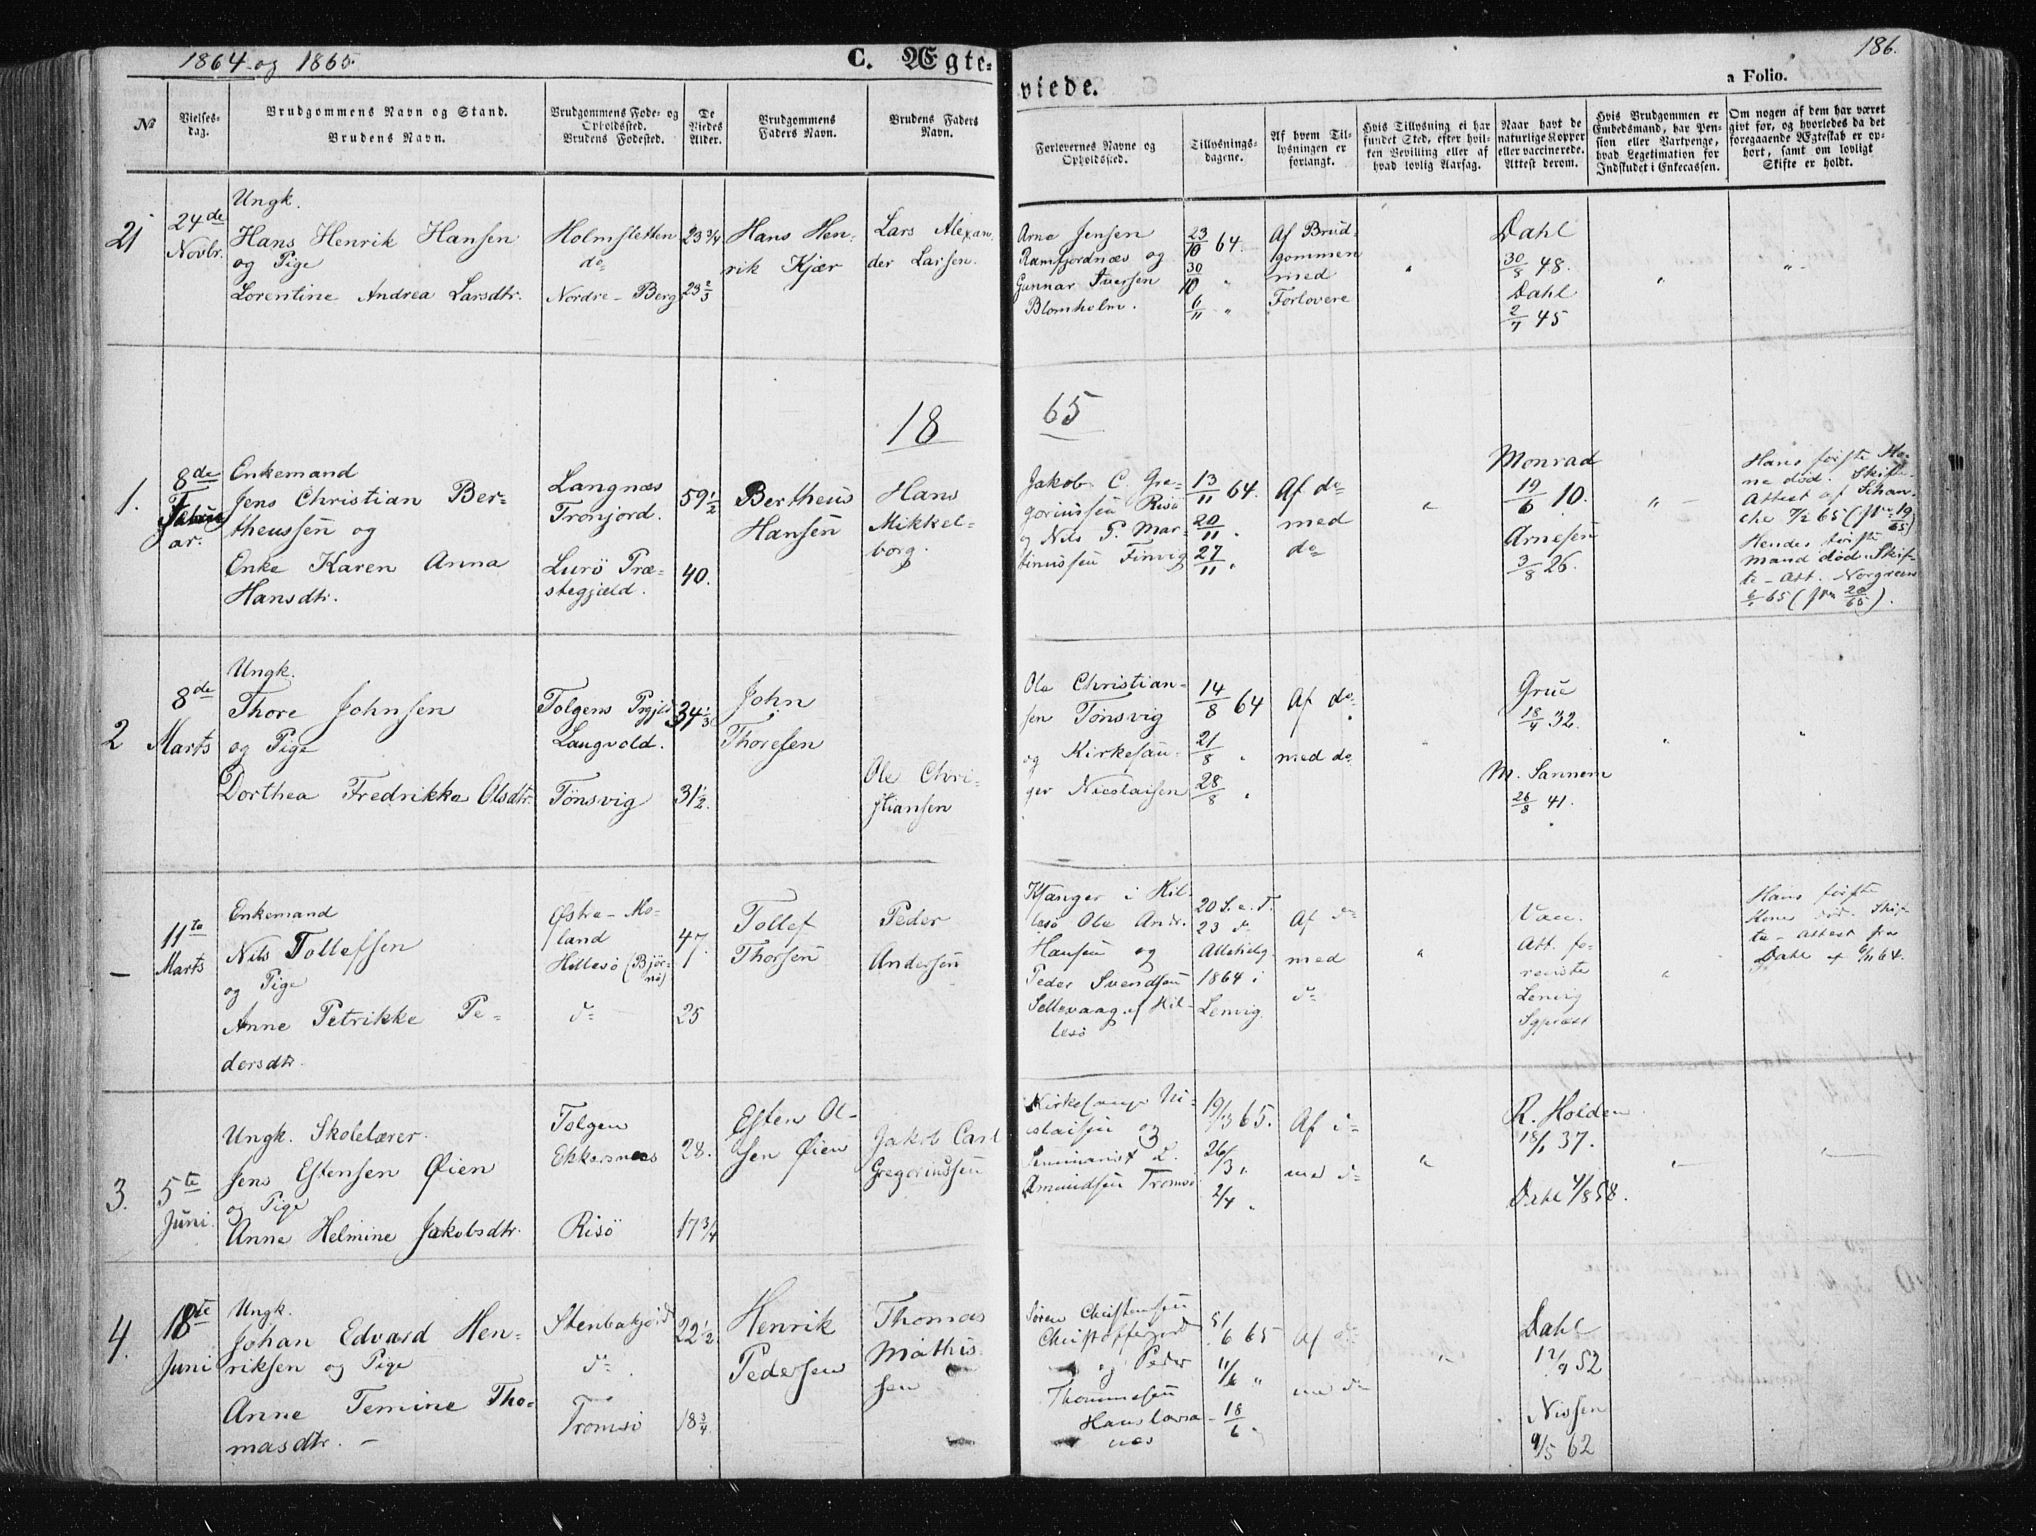 1864 og 1865.
C. Ægte-
viede.
186.
a Folio.
No
Vielses-
dag.
Brudgommens Navn og Stand.
Brudens Navn.
Brudgommens Føde- og
Opholdssted.
Brudens Fødested.
De
Viedes
Alder.
Brudgommens
Faders Navn.
Brudens Faders
Navn.
Forlovernes Navne og
Opholdssted.
Tillysnings-
dagene.
Af hvem Til-
lysningen er
forlangt.
Hvis Tillysning ei har
fundet Sted, efter hvil-
ken Bevilling eller af
hvad lovlig Aarsag.
Naar havt de
naturlige Kopper
eller vaccinerede.
Attest derom.
Hvis Brudgommen er
Embedsmand, har Pen-
sion eller Vartpenge,
hvad Legetimation for
Indskudet i Enkecassen.
Om nogen af dem har været
gift før, og hvorledes da det
foregaaende Ægteskab er op-
hørt, samt om lovligt
Skifte er holdt.
21
24de
Novbr.
Ungk.
Hans Henrik Hansen
og Pige
Lorentine Andrea Larsdtr.
Holmsletten
do
Nordre-Berg
23 3/4
23 2/3
Hans Hen-
rik Kjær
Lars Alexan-
der Larsen.
Arne Jensen
Ramfjordnæs og
Gunnar Iversen
Blomholm.
23/10 64.
30/10 "
6/11 "
Af Brud-
gommen
med
Forlovere
"
Dahl
30/8 48.
Dahl
2/7 45
"
"
18
65
1.
8de
Februar
ar.
Enkemand
Jens Christian Ber-
theussen og
Enke Karen Anna
Hansdtr.
Langnæs
Tronjord.
Lurö Præ-
stegjeld.
59 1/2
40.
Bertheus
Hansen
Hans
Mikkel-
borg.
Jakob C. Gre-
goriussen Risö
og Nils P. Mar-
tinussen Finvig
13/11 64.
20/11 "
27/11 "
Af do
med
do
"
Monrad
19/6 10.
Arnesen
3/8 26.
"
Hans förste Ko-
ne död. Skif-
Attest af Schan-
che 7/2 65 (fr. 19/65)
Hendes förste
mand död. Skif-
te-Att. Norgreen
6/1 65 (fr. 20/65).
2
8de
Marts
Ungk.
Thore Johnsen
og Pige
Dorthea Fredrikke Olsdtr.
Tolgens Prgjld
Langvold.
Tönsvig
34 1/3
31 1/2.
John
Thoresen
Ole Chri-
stiansen
Ole Christian-
sen Tönsvig
og Kirkesan-
ger Nicolaisen
14/8 64
21/8 "
28/8 "
Af do
med do
"
Grue
18/4 32.
M. Sannem
26/8 41.
"
"
-
11te
Marts
Enkemand
Nils Tollefsen
og Pige
Anne Petrikke Pe-
dersdtr.
Østre-Mo-
land
Hillesö (Björ-
nö)
do
47.
25
Tollef
Thorsen
Peder
Andersen
Ksanger i Hil-
lesö Ole Andr.
Hansen og
Peder Svendsen
Sellevaag af Hil-
lesö
20 S. e. T.
23 do
Allehelg.
1864 i
Lenvig.
Af do
med
do
"
Vacc.
Att. fo-
reviste
Lenvig
Sgpræst
"
Hans förste
Kone död. Skif-
te-attest fra
Dahl 6/11 64.
3.
5te
Juni.
Ungk. Skolelærer
Jens Estensen Øien
og Pige
Anne Helmine Jakobsdtr.
Tolgen
Ekkersnæs
Risö
28.
17 3/4
Esten Ol-
sen Øien
Jakob Carl
Gregoriussen
Kirkesanger Ni-
colaisen og
Seminarist L.
Amundsen Tromsö
19/3 65.
26/3 "
2/4 "
Af do
med do
"
R. Holden
18/1 37.
Dahl 4/8 58.
"
"
4.
18te
Juni
Ungk.
Johan Edvard Hen-
riksen og Pige
Anne Temine Tho-
masdtr. -
Stenbakjord
do
Tromsö
22 1/2.
18 3/4
Henrik
Pedersen
Thomas
Mathis-
sen
Sören Christensen
Christoffejord
og Peder
Thommesen
Hanslarsa-
næs
5/6 65
11/6 "
18/6
Af do
med do
"
Dahl
12/9 52
Nissen
9/5 62